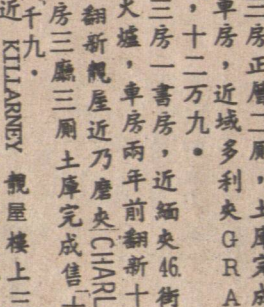 三房正層二廁，土庫完成
車房，近域多利夹GRA
，十二万九。
三房一書房，近緬夹46.街
火爐，車房兩年前翻新十
翻新靚屋近乃磨夹CHARL
房三廳三厠土庫完成售十
千九。
近 KILLARNEY 靚屋樓上三